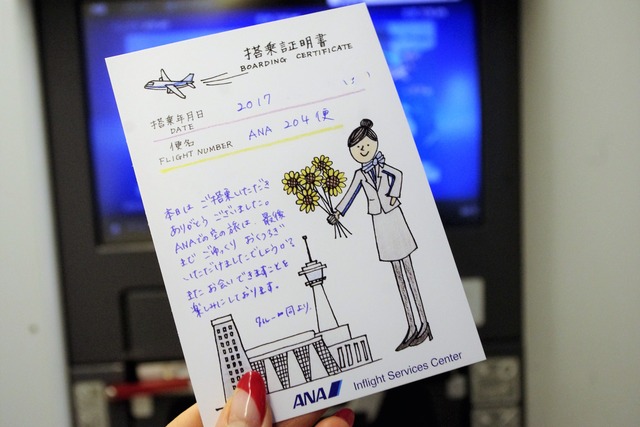 搭乗証明書
BOARDING CERTIFICATE
搭乗年月日 2017
DATE
便名 ANA 204便
FLIGHT NUMBER
本日は ご搭乗いただき
ありがとう ございました。
ANAでの空の旅は 最後
まで ごゆっくり おくつろぎ
いただけましたでしょうか？
また お会いできますことを
楽しみにしております。
クルー一同より
ANA Inflight Services Center